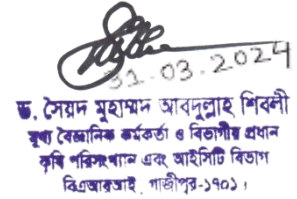 31.03.2024
ড. সৈয়দ মুহাম্মদ আবদুল্লাহ শিবলী
মুখ্য বৈজ্ঞানিক কর্মকর্তা ও বিভাগীয় প্রধান
কৃষি পরিসংখ্যান এবং আইসিটি বিভাগ
বিএআরআই, গাজীপুর-১৭০১।